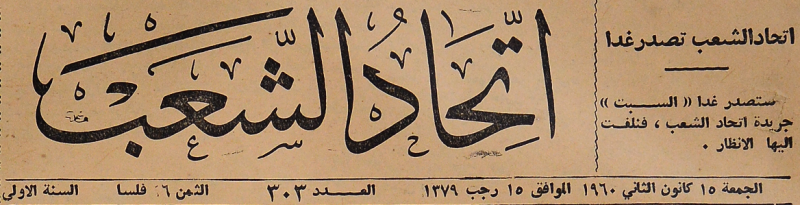 اتحاد الشعب تصدر غدا
ستصدر غدا «السبت»
جريدة اتحاد الشعب ، فنلفت
اليها الانظار .
اتّحادُ الشّعب
الجمعة ١٥ كانون الثاني ١٩٦٠ الموافق ١٥ رجب ١٣٧٩ العـدد ٣٠٣ الثمن ١٦ فلسا السنة الاولى